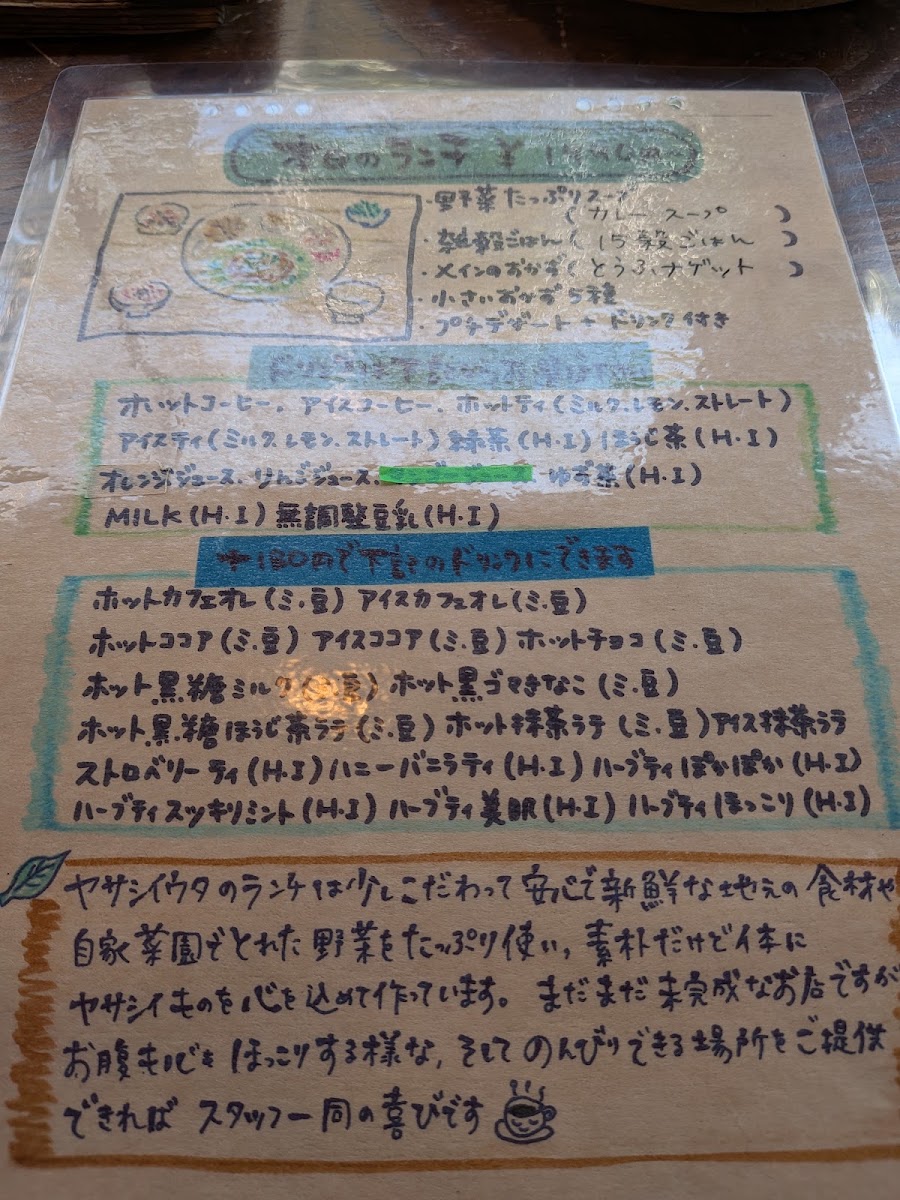 本日のランチ ¥
・野菜たっぷりスープ
(カレースープ)
・雑穀ごはん(15穀ごはん)
・メインのおかず(とうふナゲット)
・小さいおかず5種
・プチデザート+ドリンク付き
ホットコーヒー、アイスコーヒー、ホットティ(ミルク.レモン.ストレート)
アイスティ(ミルク.レモン.ストレート)緑茶(H・I)ほうじ茶(H・I)
オレンジジュース、りんごジュース、ゆず茶(H・I)
MILK(H・I)無調整豆乳(H・I)
で下記のドリンクにできます
ホットカフェオレ(ミ.豆)アイスカフェオレ(ミ.豆)
ホットココア(ミ.豆)アイスココア(ミ.豆)ホットチョコ(ミ.豆)
ホット黒糖ミルク ホット黒ゴマきなこ(ミ.豆)
ホット黒糖ほうじ茶ラテ(ミ.豆)ホット抹茶ラテ(ミ.豆)アイス抹茶ラテ
ストロベリーティ(H・I)ハニーバニラティ(H・I)ハーブティぽかぽか(H・I)
ハーブティスッキリミント(H・I)ハーブティ美肌(H・I)ハーブティほっこり(H・I)
ヤサシイウタのランチは少しこだわって安心で新鮮な地元の食材や
自家菜園でとれた野菜をたっぷり使い、素朴だけど体に
ヤサシイものを心を込めて作っています。まだまだ未完成なお店ですが
お腹も心もほっこりする様な、そしてのんびりできる場所をご提供
できればスタッフ一同の喜びです